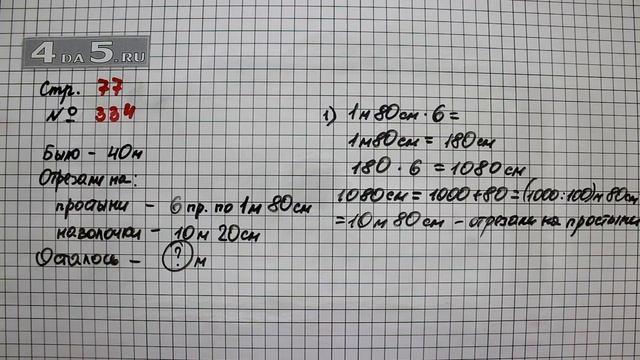 4DA5.RU
Стр. 77
№ 334
Было - 40м
Отрезали на:
простыни - 6 пр. по 1м 80см
наволочки - 10м 20см
Осталось - ? м
1) 1м80см · 6 =
1м80см = 180см
180 · 6 = 1080см
1080см = 1000+80 = (1000:100)м 80см
= 10м 80см - отрезали на простыни